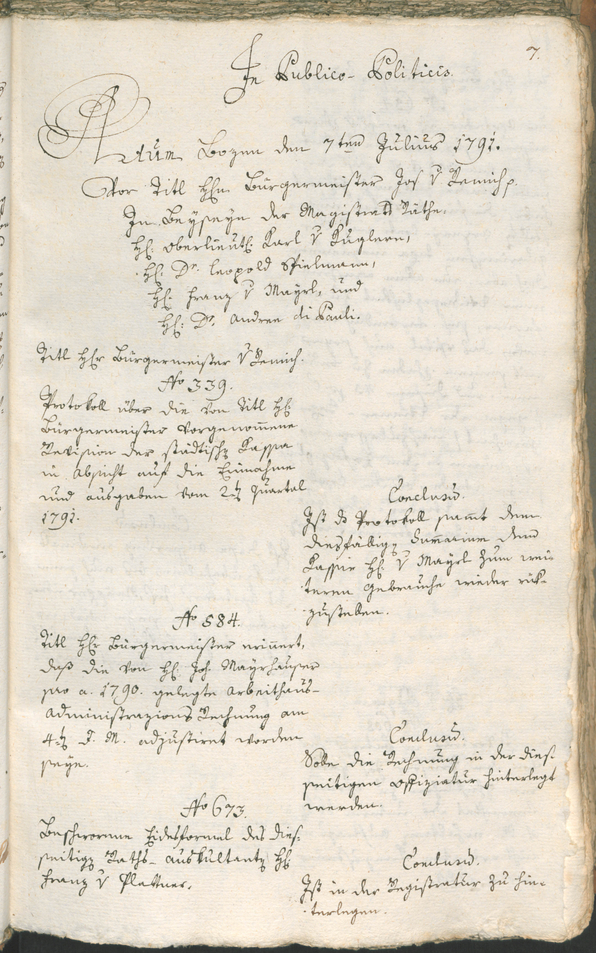 7.
In Publico-Politicis.
Actum Bozen den 7ten Julius 1791.
Vor Titl Hhn. Bürgermeister Jos v Remich p.
In Beyseyn der Magistrats Räthe.
Hl. Oberlieut: Karl v Kuglern,
Hl: Dr. Leopold Spielmann,
Hl: Franz v Mayrl, und
Hl: Dr. Andreä di Pauli.
Titl Hhr Bürgermeister v Remich.
No 339.
Protokoll über die von Titl Hl:
Bürgermeister vorgenommene
Revision der städtischen Kassa
in Absicht auf die Einnahme
und Ausgaben vom 2tn Quartal
1791.
Conclusum.
Ist das Protokoll sammt dem
diesfälligen Summarium dem
Kassier Hl: v Mayrl zum wei-
teren Gebrauche wieder rük-
zustellen.
No 584.
Titl Hhr Bürgermeister erinert,
daß die von Hl. Joh. Mayrhauser
pro a. 1790. gelegte Arbeithaus-
Administrazions Rechnung am
4tn d. M. adjustiret worden
seye.
Conclusum.
Solle die Rechnung in der dies-
seitigen Offiziatur hinterlegt
werden.
No 673.
Beschworene Eidesformel des dies-
seitigen Raths-Auskultanten Hl:
Franz v Plattner.
Conclusum.
Ist in der Registratur zu hin-
terlegen.